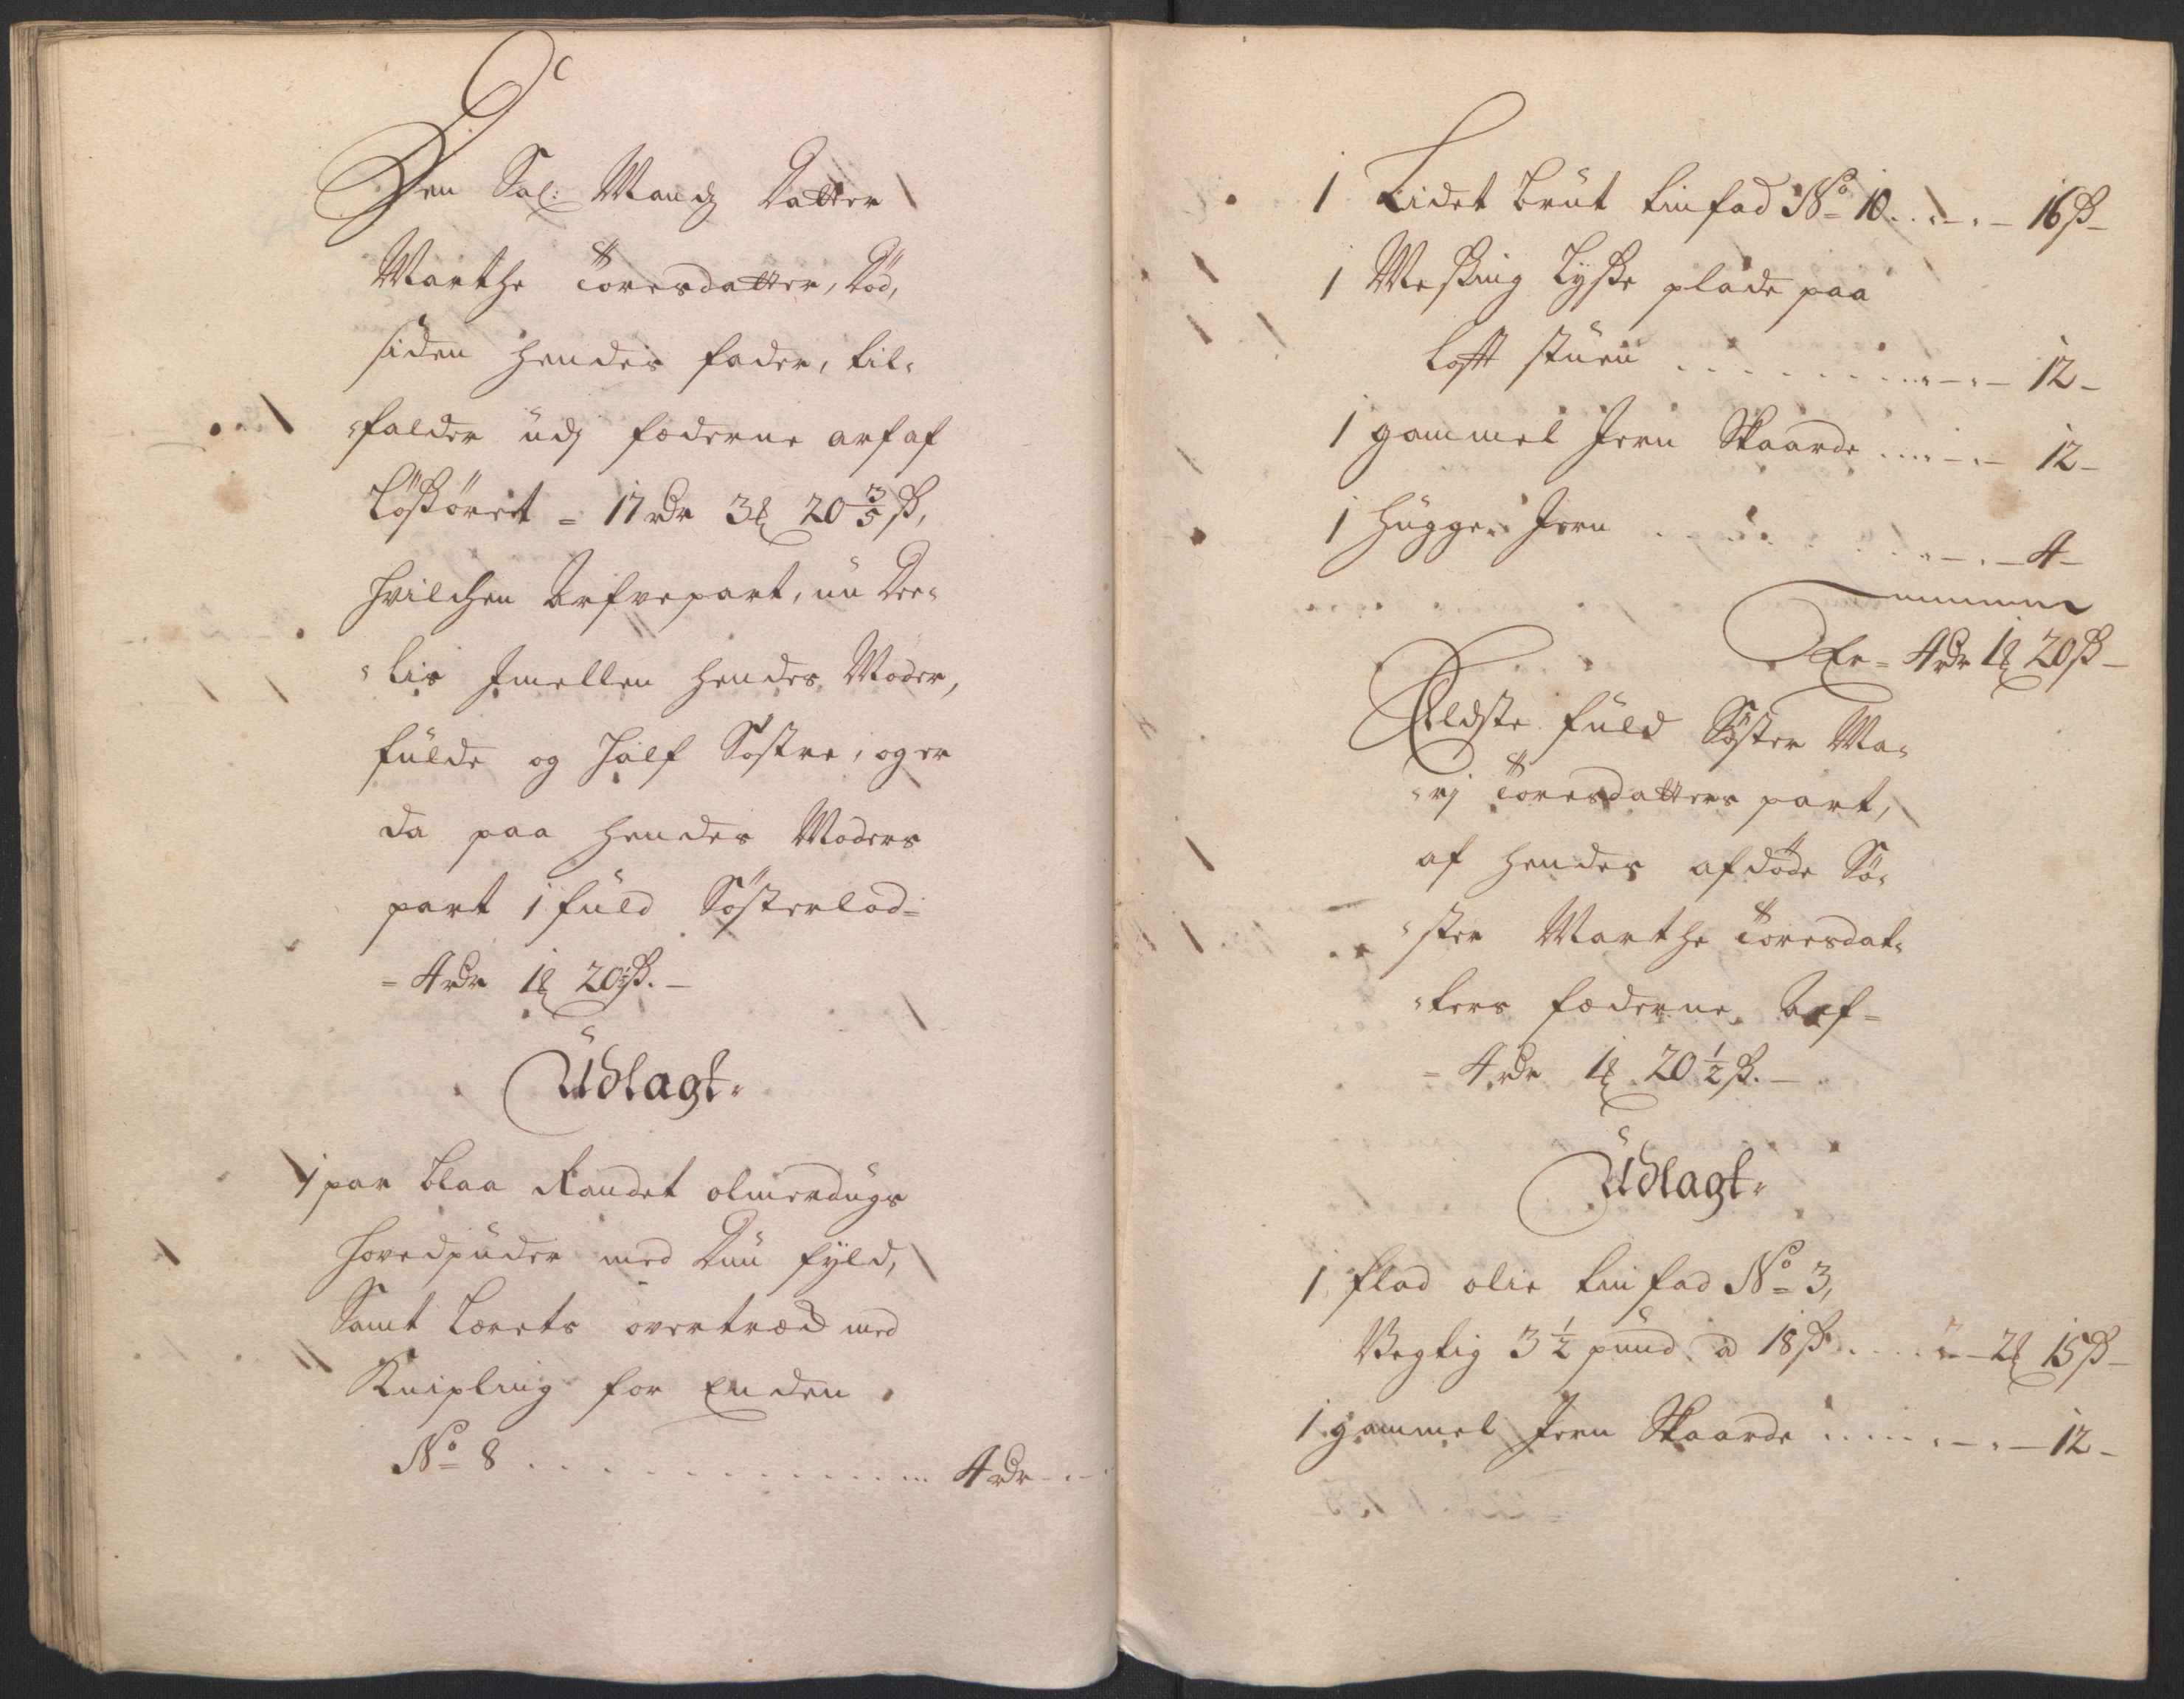 Den Sal: Mands Datter
Marthe Toresdatter, død,
siden hendes fader, til-
falder udj fæderne arf af
Løsøret = 17 rdr 3 ℔ 20 3/5 ß,
hvilchen Arfvepart, nu dee-
lis Imellem hendes Moder,
fulde og Half Søstre, og er
da paa hendes Moders
part 1 fuld Søsterlod =
= 4 rdr 1 ℔ 20½ ß. –
Udlagt.
1 par blaa Randet olmerdugs
hovedpuder med Duun fyld,
Samt Lærets overtræk med
Knipling for Enden
No 8 . . . . . . . . . . 4 rdr - . -
1 Lidet brut tinfad No 10 . . - . - 16 ß –
1 Messing Lyse plade paa
Loft stuen . . . . . . . . - . - 12 –
1 gammel Jern Skaarde . . . - . - 12 –
1 hugge Jern . . . . . . . - . - 4 –
Er = 4 rdr 1 ℔ 20 ß –
Eldste fuld Søster Ma-
rj Toresdatters part,
af hendes afdøde Sø-
ster Marthe Toresdat-
ters fæderne Arf =
= 4 rdr 1 ℔ 20 ½ ß. –
Udlagt.
1 flad olie tinfad No 3,
Vegtig 3 ½ pund a 18 ß . . . . - 2 ℔ 15 ß –
1 gammel Jern Skaarde . . . . . - . - 12 –